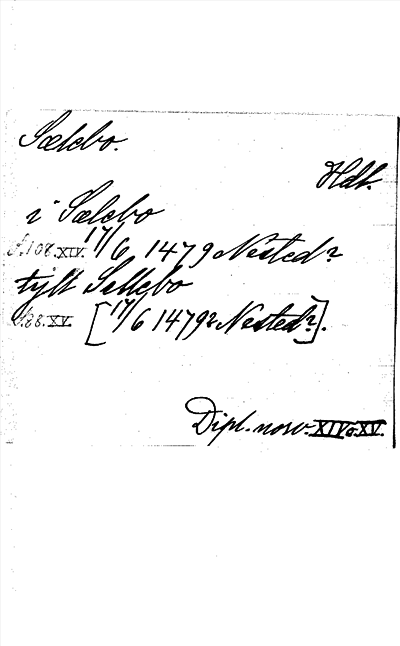 Sælebo.
Hdl.
i Sælebo
S.108.XIV. 17/6 1479 Nested?
tylt Sellebo
S.88.XV. [17/6 1479? Nested?].
Dipl. norv. XIV o XV.